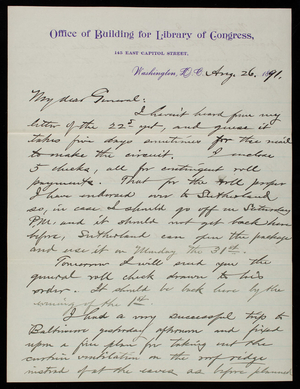 Office of Building for Library of Congress,
145 EAST CAPITOL STREET,
Washington, D.C. Aug. 26. 1891.
My dear General:
I havn't heard from my
letter of the 22d yet, and guess it
takes five days sometimes for the mail
to make the circuit. I enclose
5 checks, all for contingent roll
payments. That for the roll proper
I have endorsed over to Sutherland
so, in case I should go off on Saturday
PM. and it should not get back here
before, Sutherland can open the package
and use it on Monday the 31st.
Tomorrow I will send you the
general roll check drawn to his
order. It should be back here by the
morning of the 1st.
I had a very successful trip to
Baltimore yesterday afternoon and fixed
upon a fine plan for taking out the
curtain ventilation on the roof ridge
instead of at the eaves as before planned